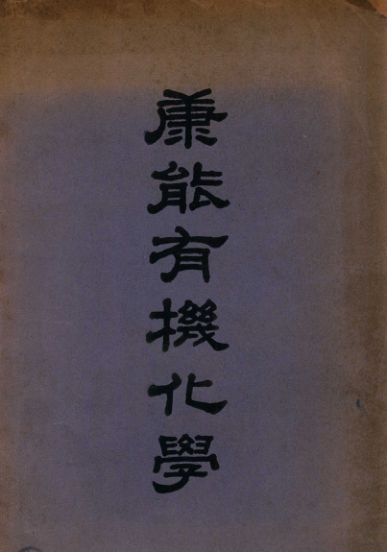 康能有機化學